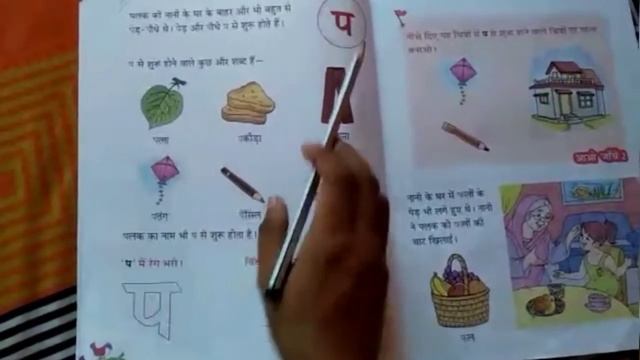 पलक को नानी के घर के बाहर और भी बहुत से
पेड़-पौधे थे। पेड़ और पौधे प से शुरू होते हैं।
प
प से शुरू होने वाले कुछ और शब्द हैं–
पत्ता
पकौड़ा
पतंग
पेंसिल
पलक का नाम भी प से शुरू होता है।
'प' में रंग भरो।
प
नीचे दिए गए चित्रों में प से शुरू होने वाले चित्रों पर गोला
बनाओ।
आओ जाँचें 2
नानी के घर में फलों के
पेड़ भी लगे हुए थे। नानी
ने पलक को फलों की
चाट खिलाई।
फल